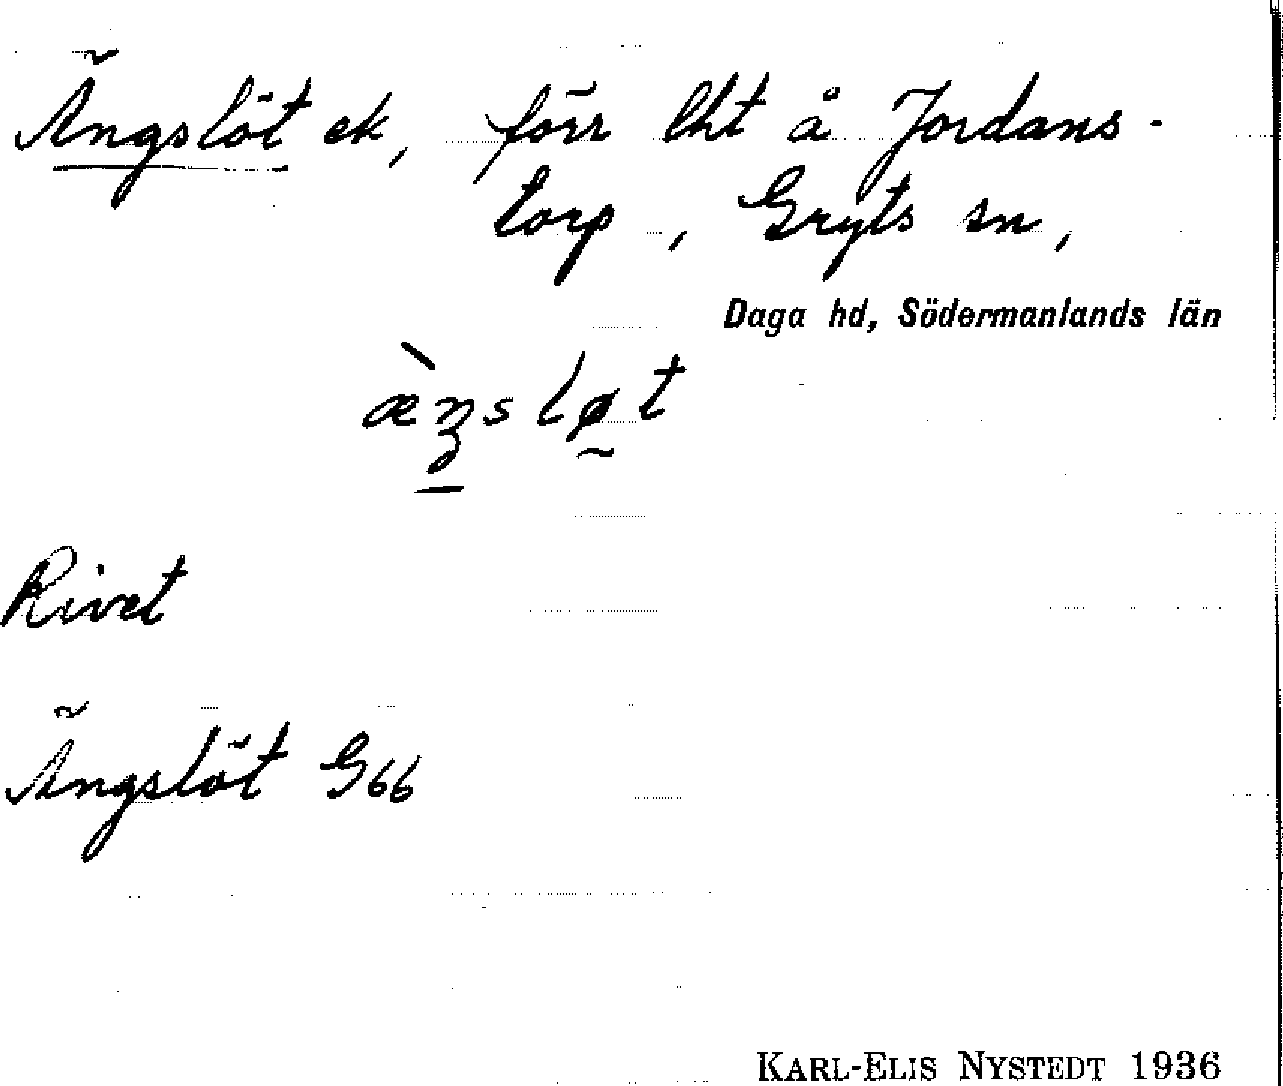 Ängslöt ek, förr lht å Jordans-
torp, Gryts sn,
Daga hd, Södermanlands län
æ̀ŋsløt
Rivet
Ängslöt G66
KARL-ELIS NYSTEDT 1936